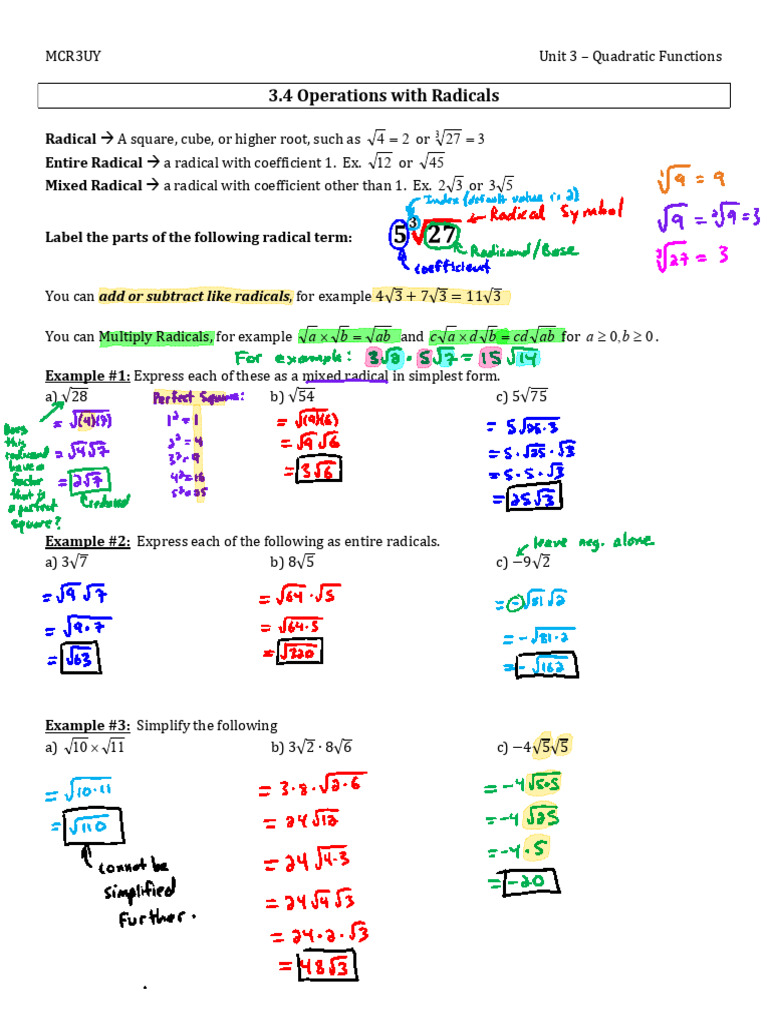 MCR3UY Unit 3 – Quadratic Functions
3.4 Operations with Radicals
Radical → A square, cube, or higher root, such as √4 = 2 or ∛27 = 3
Entire Radical → a radical with coefficient 1. Ex. √12 or √45
Mixed Radical → a radical with coefficient other than 1. Ex. 2√3 or 3√5
Index (default value is 2)
Radical Symbol
Label the parts of the following radical term: 5∛27
Radicand/Base
coefficient
¹√9 = 9
√9 = ²√9 = 3
³√27 = 3
You can add or subtract like radicals, for example 4√3 + 7√3 = 11√3
You can Multiply Radicals, for example √a × √b = √ab and c√a × d√b = cd√ab for a ≥ 0, b ≥ 0 .
For example: 3√2 · 5√7 = 15√14
Example #1: Express each of these as a mixed radical in simplest form.
a) √28
= √(4)(7)
= √4√7
= 2√7
reduced
Does
this
radicand
have a
factor
that is
a perfect
square?
Perfect Squares:
1² = 1
2² = 4
3² = 9
4² = 16
5² = 25
b) √54
= √(9)(6)
= √9 √6
= 3√6
c) 5√75
= 5√25·3
= 5·√25·√3
= 5·5·√3
= 25√3
Example #2: Express each of the following as entire radicals.
a) 3√7
= √9 √7
= √9·7
= √63
b) 8√5
= √64 · √5
= √64·5
= √320
leave neg. alone
c) −9√2
= −√81 √2
= −√81·2
= −√162
Example #3: Simplify the following
a) √10 × √11
= √10·11
= √110
cannot be
simplified
further.
b) 3√2 · 8√6
= 3·8·√2·6
= 24√12
= 24√4·3
= 24√4√3
= 24·2·√3
= 48√3
c) −4√5√5
= −4√5·5
= −4√25
= −4·5
= −20